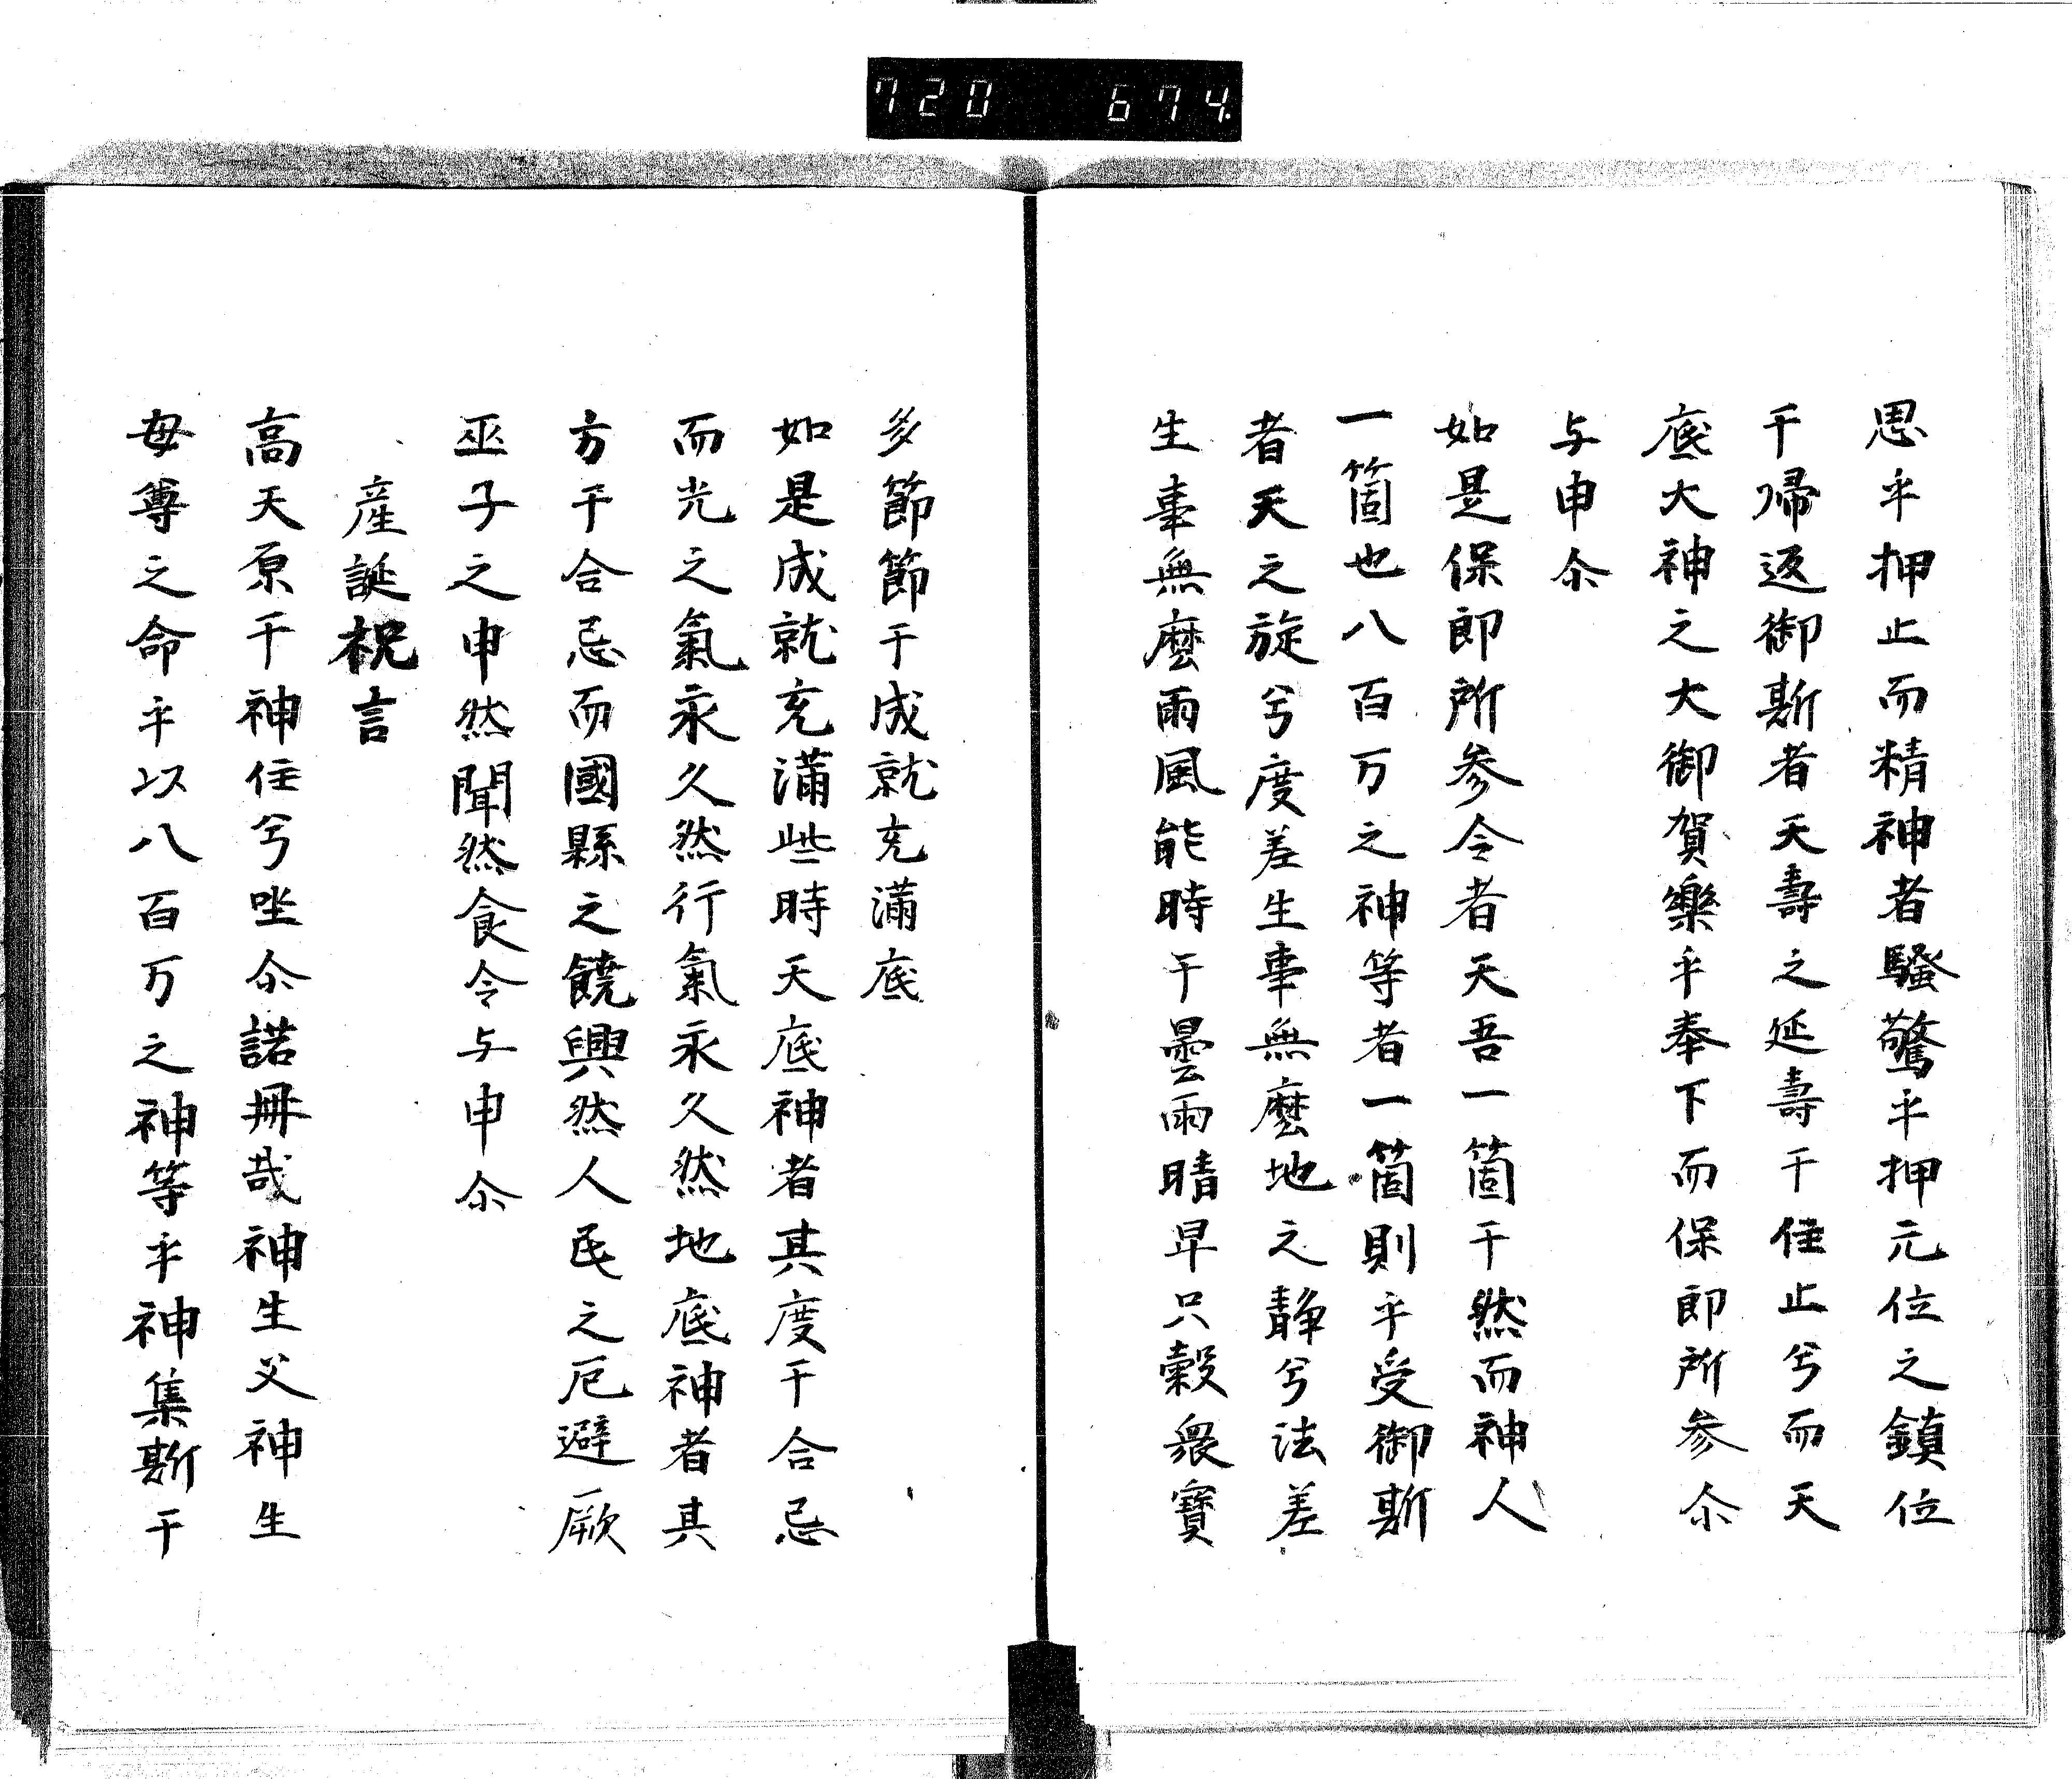 720 674.
思乎押止而精神者騷驚乎押元位之鎮位
千帰返御斯者天壽之延壽千住止兮而天
底大神之大御賀樂乎奉下而保即所参尒
与申尒
如是保即所参令者天吾一箇千然而神人
一箇也八百万之神等者一箇則乎受御斯
者天之旋兮度差生事無麼地之静兮法差
生事無麼雨風能時千曇雨晴早只穀衆寶
多節節千成就充滿底
如是成就充滿些時天底神者其度千合忌
而光之氣永久然行氣永久然地底神者其
方千合忌而國縣之饒興然人民之厄避厥
巫子之申然聞然食令与申尒
産誕祝言
高天原千神住兮坐尒諾冊哉神生父神生
母尊之命乎以八百万之神等乎神集斯千